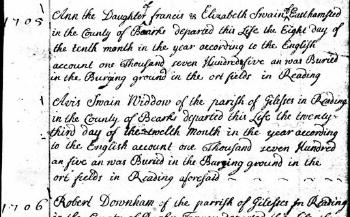 1705
Ann the Daughter of francis & Elizabeth Swain of Easthamsted
in the County of Bearks departed this Life the Eight day of
the tenth month in the year according to the English
account one Thousand seven Hundred five an was Buried
in the Burying ground in the ort fields in Reading
Avis Swain Widdow of the parish of Gilesses in Reading
in the County of Bearks departed this Life the twenty-
third day of the twelvth Month in the year according
to the English account one Thousand seven Hundred
an five an was Buried in the Burying ground in the
ort fields in Reading aforesaid
1706
Robert Downham of the parrish of Gilesses in Reading
in the County of